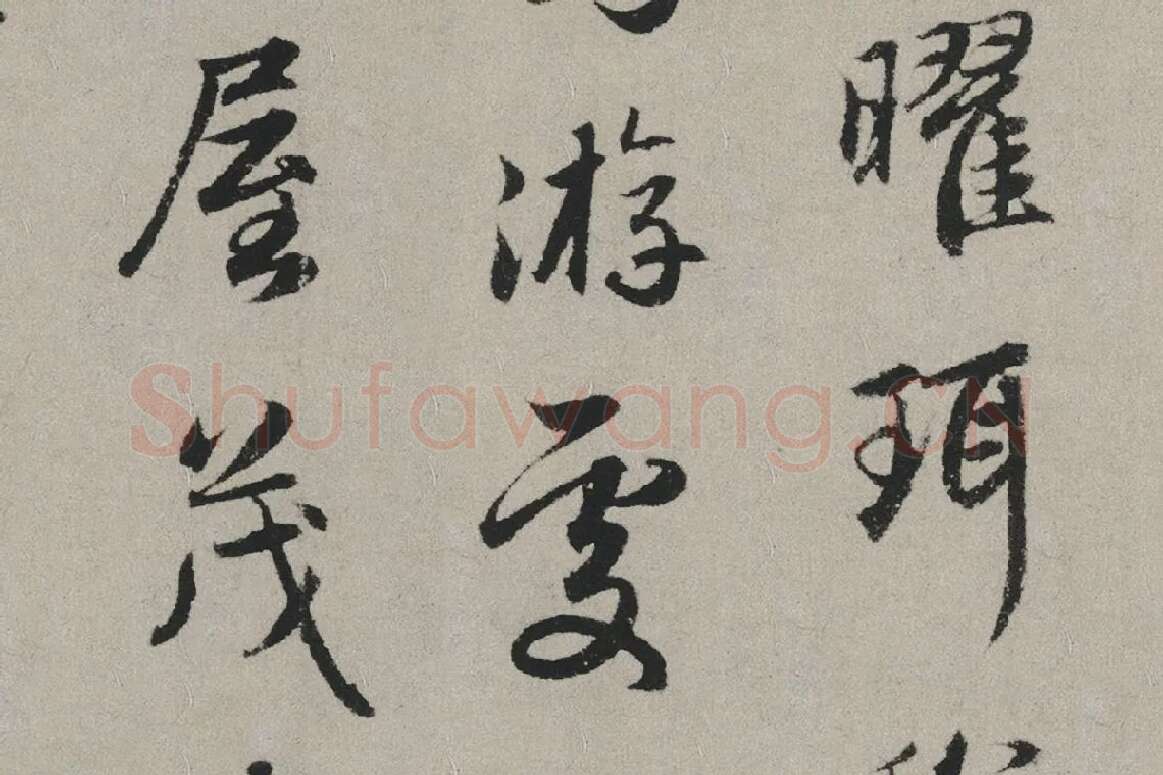 曜珥
游
屋茂
Shufawang.CN